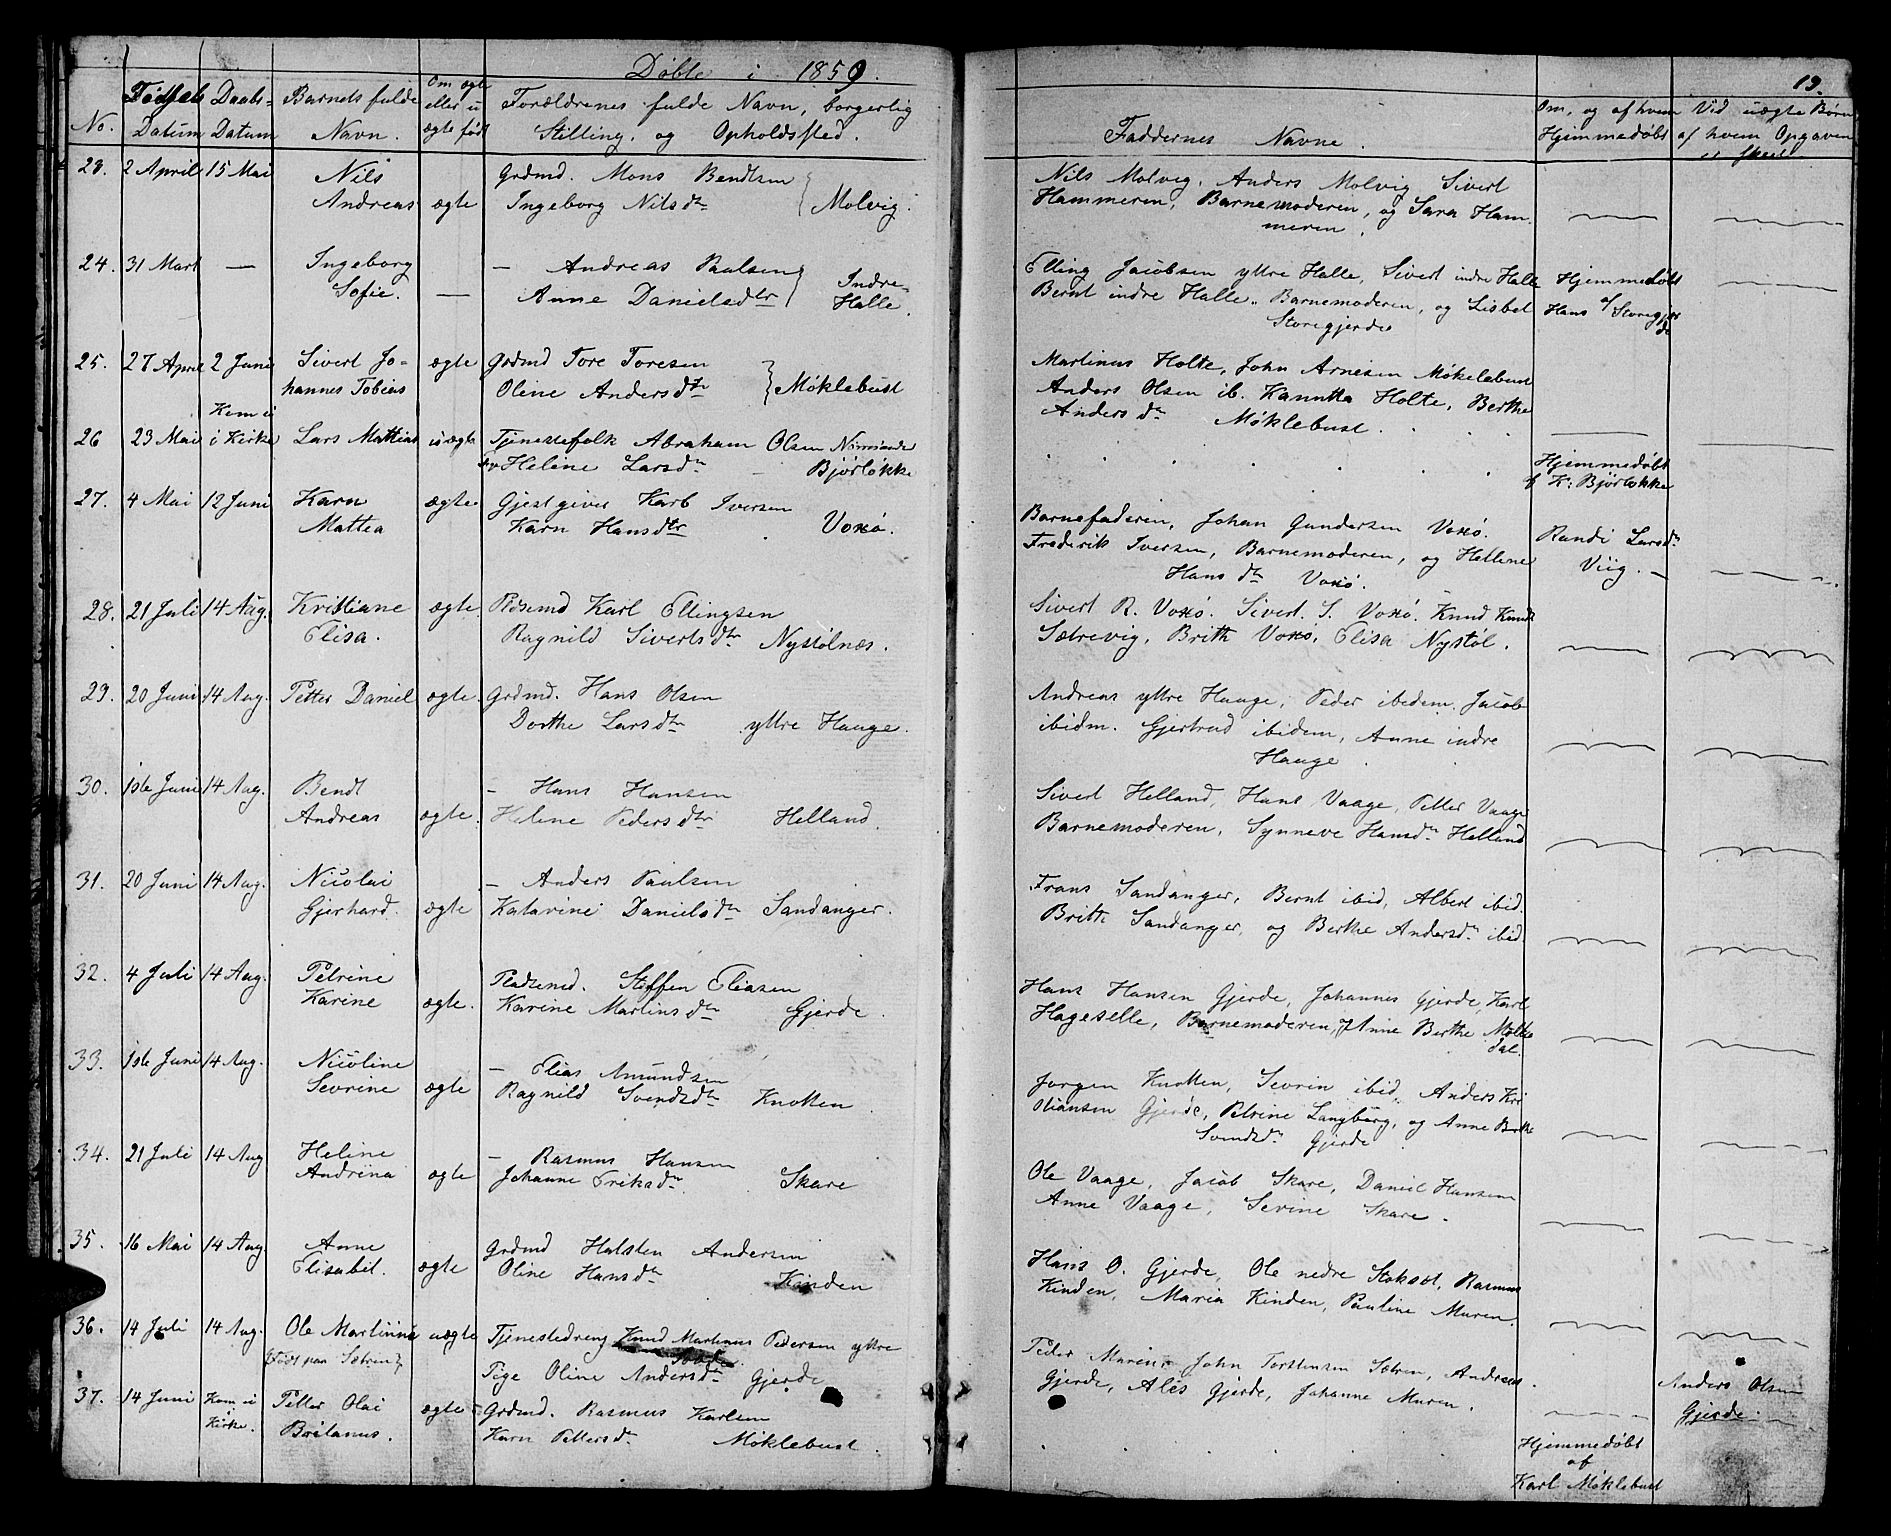 Døbte i 1859.
No. Fødsels Datum Daabs- Datum Barnets fulde Navn. Om ægte eller uægte født Forældrenes fulde Navn, borgerlig Stilling, og Opholdssted.
23. 2 April 15 Mai Nils Grdmd. Mons Bendtsen
Andreas ægte Ingeborg Nilsdtr Molvig.
24. 31 Mart — Ingeborg — Andreas Paulsen Indre-
Sofie. — Anne Danielsdtr Halle.
25. 27 April 2 Juni Sivert Jo- ægte Grdmd Tore Toresen
hannes Tobias Oline Andersdtr Møklebust
Kom ei
26 23 Mai i Kirke Lars Mattias uægte Tjenestefolk Abraham Olsen
Heline Larsdtr Bjørløkke
27. 4 Mai 12 Juni Karn ægte Gjestgiver Karl Iversen
Mattea Karn Hansdtr Voxø.
28. 21 Juli 14 Aug. Kristiane ægte Pldsmd Karl Ellingsen
Elisa. Ragnild Sivertsdtr Nystølnæs.
29. 20 Juni 14 Aug. Petter Daniel ægte Grdmd. Hans Olsen
Dorthe Larsdtr yttre Hauge.
30. 1ste Juni 14 Aug. Bendt — Hans Hansen
Andreas ægte. Helene Pedersdtr Helland.
31. 20 Juni 14 Aug. Nicolai — Anders Paulsen
Gjerhard. ægte Katarine Danielsdtr Sandanger.
32. 4 Juli 14 Aug. Petrine Pladsmd. Steffen Eliasen
Karine ægte. Karine Martinsdtr Gjerde.
33. 1ste Juni 14 Aug. Nicoline — Elias Amundsen
Sevrine ægte Ragnild Svendsdtr Knotten
34. 21 Juli 14 Aug Heline — Rasmus Hansen
Andrina ægte Johanne Eriksdtr. Skare
35. 16 Mai 14 Aug. Anne Grdmd Halsten Andersen
Elisabet. ægte Oline Hansdtr Kinden
36. 14 Juli 14 Aug. Ole Martinus uægte Tjenestedreng Knud Martinus Pedersen yttre
(Født paa Sætren)
Pige Oline Andersdtr Gjerde
37. 14 Juni Kom ei i Kirke. Petter Olai ægte Grdmd. Rasmus Karlsen
Britanus. Karn Pettersdtr Møklebust.
19.
Faddernes Navne. Om, og af hvem Hjemmedøbt Vid uægte Børn af hvem Opgaven er skeet
Nils Molvig, Anders Molvig Sivert
Hammeren, Barnemoderen, og Sara Ham-
meren.
Elling Jacobsen yttre Halle, Sivert indre Halle Hjemmedøbt
Bernt indre Halle. Barnemoderen, og Lisbet af Hans Storegjerde
Storegjerde
Martinus Holte, John Arnesen Møkelebust
Anders Olsen ib. Kanutta Holte, Berthe
Andersdtr Møklebust.
Hjemmedøbt
af K: Bjørløkke
Barnefaderen, Johan Gundersen Voxø. Randi Larsdtr
Frederik Iversen, Barnemoderen, og Hellene Viig. —
Hansdtr Voxø.
Sivert R. Voxø. Sivert. S. Voxø. Knud Knuds
Sætrevig, Brith Voxø, Elisa Nystøl.
Andreas yttre Hauge, Peder ibedem. Jacob
ibidm. Gjertrud ibidem, Anne indre
Hauge.
Sivert Helland, Hans Vaage, Petter Vaage
Barnemoderen, Synneve Hansdtr Helland
Frans Sandanger, Bernt ibid, Albert ibid.
Britte Sandanger, og Berthe Andersdtr ibid.
Hans Hansen Gjerde, Johannes Gjerde, Karl
Hageselle, Barnemoderen, Anne Berthe Molte-
dal.
Jørgen Knotten, Sevrin ibid, Anders Kri
stiansen Gjerde, Petrine Langbørg, og Anne Berthe
Svendsdtr Gjerde
Ole Vaage, Jacob Skare, Daniel Hansen
Anne Vaage, Serine Skare.
Hans O. Gjerde, Ole nedre Stokset, Rasmus
Kinden. Maria Kinden, Pauline Muren.
Peder Muren, John Torstensen Sætren, Andreas Anders Olsen
Gjerde, Ales Gjerde, Johanne Muren. Gjerde
Hjemmedøbt
af
Karl Møklebust